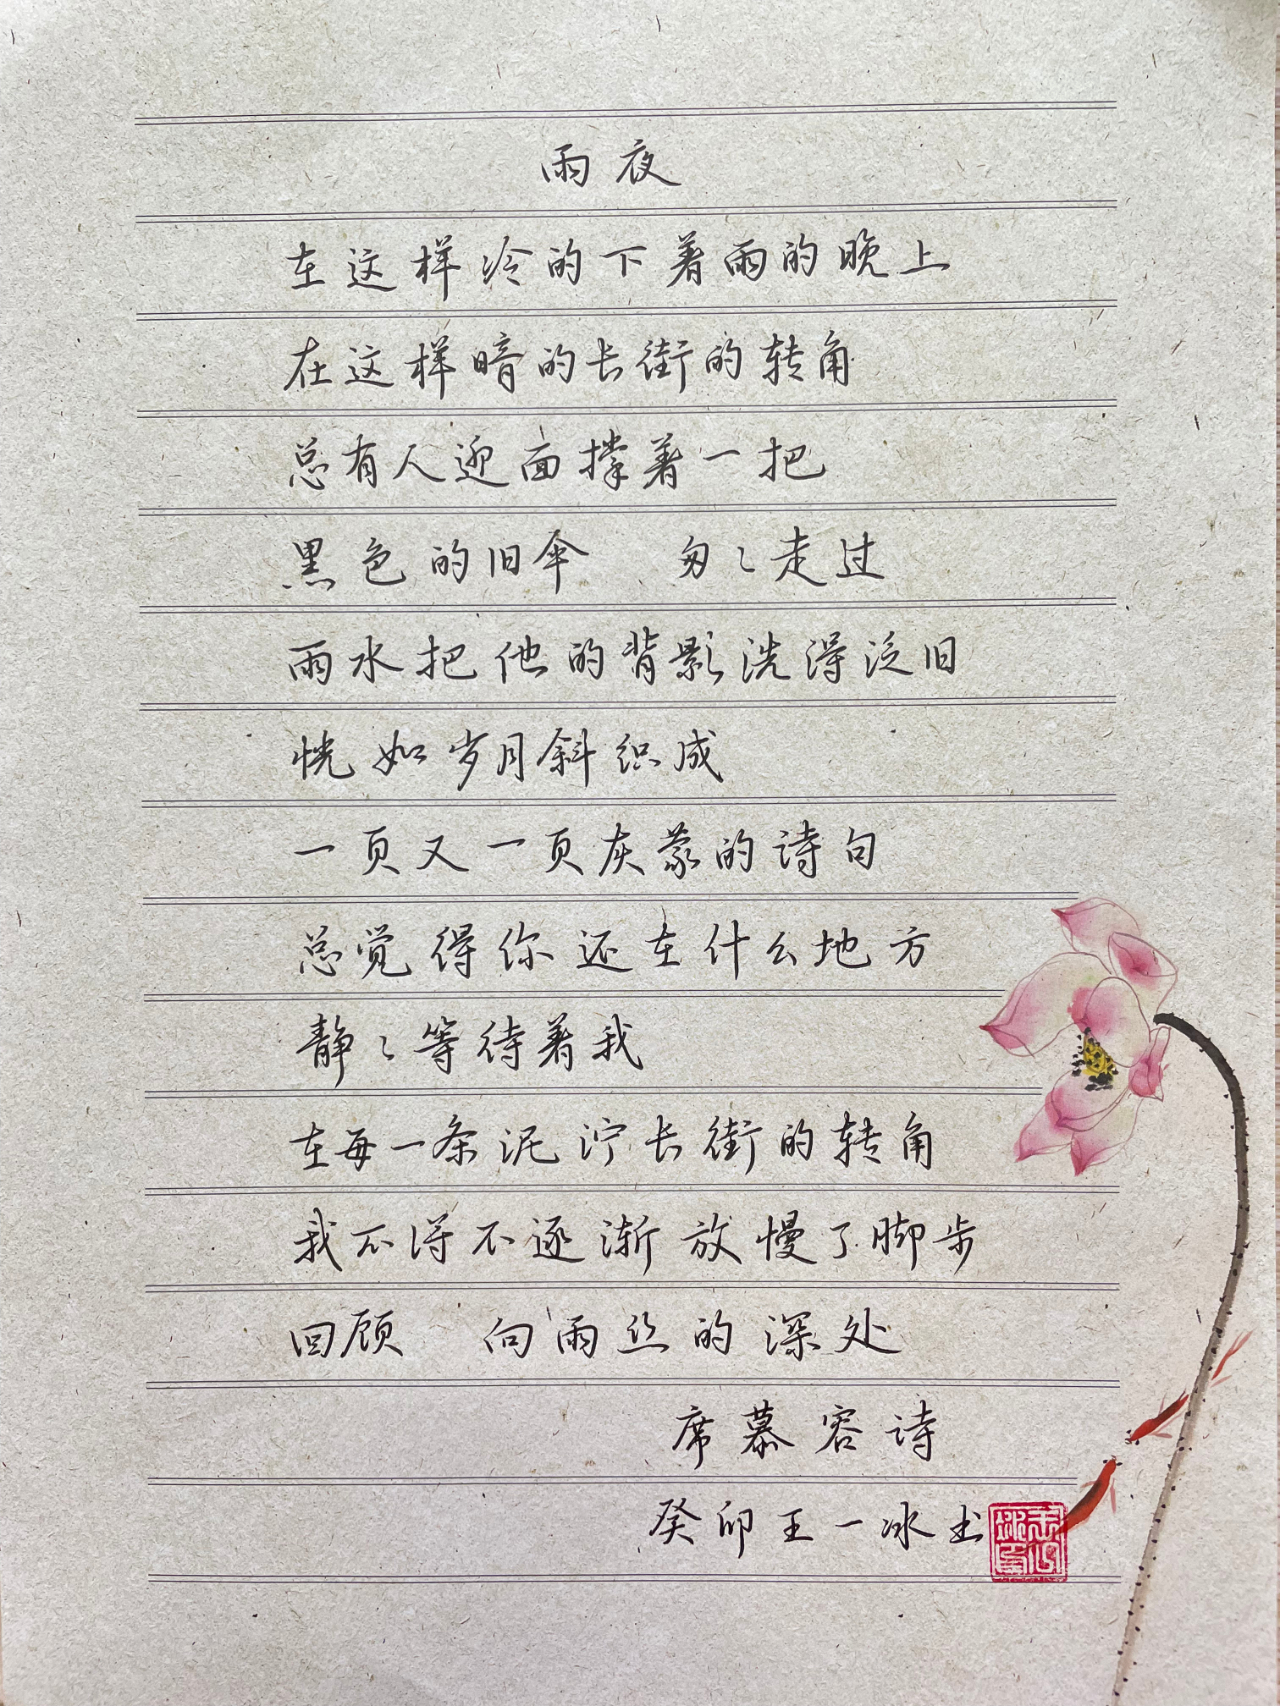 雨夜
在这样冷的下着雨的晚上
在这样暗的长街的转角
总有人迎面撑着一把
黑色的旧伞 匆匆走过
雨水把他的背影洗得泛旧
恍如岁月斜织成
一页又一页灰蒙的诗句
总觉得你还在什么地方
静静等待着我
在每一条泥泞长街的转角
我不得不逐渐放慢了脚步
回顾 向雨丝的深处
席慕容诗
癸卯王一冰书